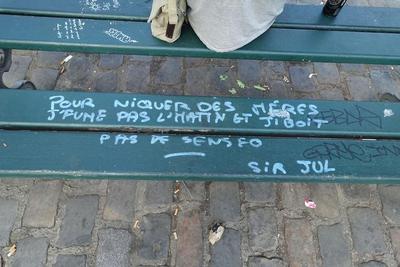 POUR NIQUER DES MÈRES
J'FUME PAS L'MATIN ET J'BOIT
PAS DE SENSEO
SIR JUL